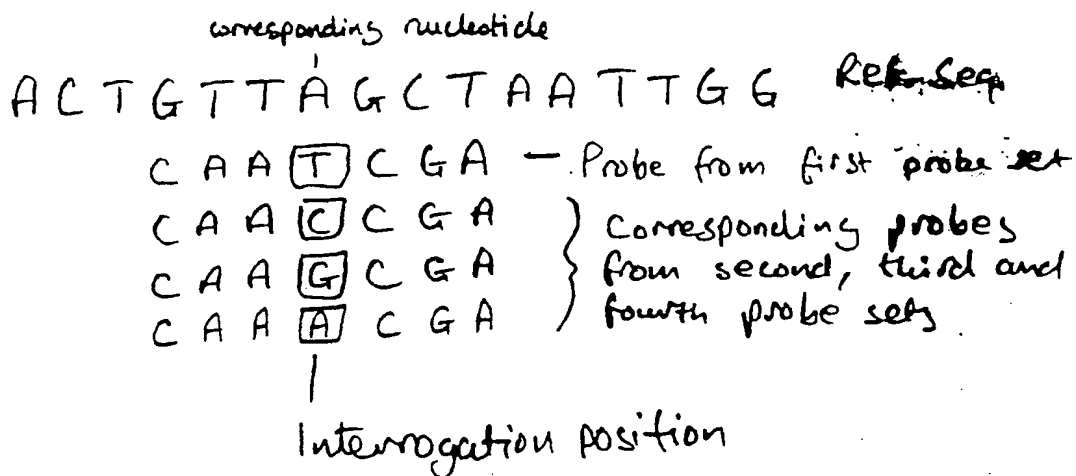 corresponding nucleotide
A C T G T T A G C T A A T T G G Ref. Seq
C A A T C G A — Probe from first probe set
C A A C C G A } Corresponding probes
C A A G C G A from second, third and
C A A A C G A fourth probe sets
Interrogation position